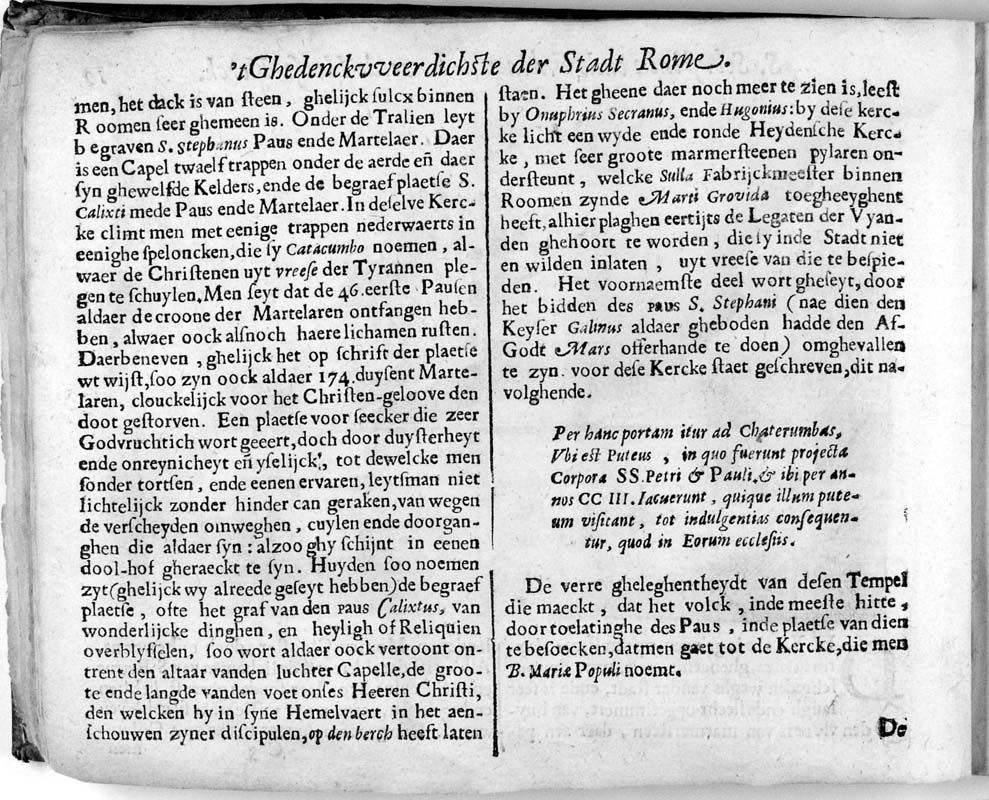 'tGhedenckvveerdichste der Stadt Rome.
men, het dack is van steen, ghelijck sulcx binnen
Roomen seer ghemeen is. Onder de Tralien leyt
begraven S. Stephanus Paus ende Martelaer. Daer
is een Capel twaelf trappen onder de aerde eñ daer
syn ghewelfde Kelders, ende de begraef plaetse S.
Calixti mede Paus ende Martelaer. In deselve Kerc-
ke climt men met eenige trappen nederwaerts in
eenighe speloncken, die sy Catacumbo noemen, al-
waer de Christenen uyt vreese der Tyrannen ple-
gen te schuylen, Men seyt dat de 46. eerste Pausen
aldaer de croone der Martelaren ontfangen heb-
ben, alwaer oock alsnoch haere lichamen rusten.
Daerbeneven, ghelijck het op schrift der plaetse
wt wijst, soo zyn oock aldaer 174. duysent Marte-
laren, clouckelijck voor het Christen-geloove den
doot gestorven. Een plaetse voor seecker die zeer
Godvruchtich wort geeert, doch door duysterheyt
ende onreynicheyt eñ yselijck, tot dewelcke men
sonder tortsen, ende eenen ervaren, leytsman niet
lichtelijck zonder hinder can geraken, van wegen
de verscheyden omweghen, cuylen ende doorgan-
ghen die aldaer syn : alzoo ghy schijnt in eenen
dool-hof gheraeckt te syn. Huyden soo noemen
zyt (ghelijck wy alreede geseyt hebben) de begraef
plaetse, ofte het graf van den Paus Calixtus, van
wonderlijcke dinghen, en heyligh of Reliquien
overblyfselen, soo wort aldaer oock vertoont on-
trent den altaar vanden luchter Capelle, de groo-
te ende langde vanden voet onses Heeren Christi,
den welcken hy in syne Hemelvaert in het aen-
schouwen zyner discipulen, op den berch heeft laten
staen. Het gheene daer noch meer te zien is, leest
by Onuphrius Secranus, ende Hugonius: by dese kerc-
ke licht een wyde ende ronde Heydensche Kerc-
ke, met seer groote marmersteenen pylaren on-
dersteunt, welcke Sulla Fabrijckmeester binnen
Roomen zynde Marti Grovida toegheeyghent
heeft, alhier plaghen eertijts de Legaten der Vyan-
den ghehoort te worden, die sy inde Stadt niet
en wilden inlaten, uyt vreese van die te bespie-
den. Het voornaemste deel wort gheseyt, door
het bidden des Paus S. Stephani (nae dien den
Keyser Galinus aldaer gheboden hadde den Af-
Godt Mars offerhande te doen) omghevallen
te zyn. voor dese Kercke staet geschreven, dit na-
volghende.
Per hanc portam itur ad Chaterumbas,
Vbi est Puteus, in quo fuerunt projecta
Corpora SS. Petri & Pauli, & ibi per an-
nos CC III. Iacuerunt, quique illum pute-
um visitant, tot indulgentias consequen-
tur, quod in Eorum ecclesiis.
De verre gheleghentheydt van desen Tempel
die maeckt, dat het volck, inde meeste hitte,
door toelatinghe des Paus, inde plaetse van dien
te besoecken, datmen gaet tot de Kercke, die men
B. Mariæ Populi noemt.
De